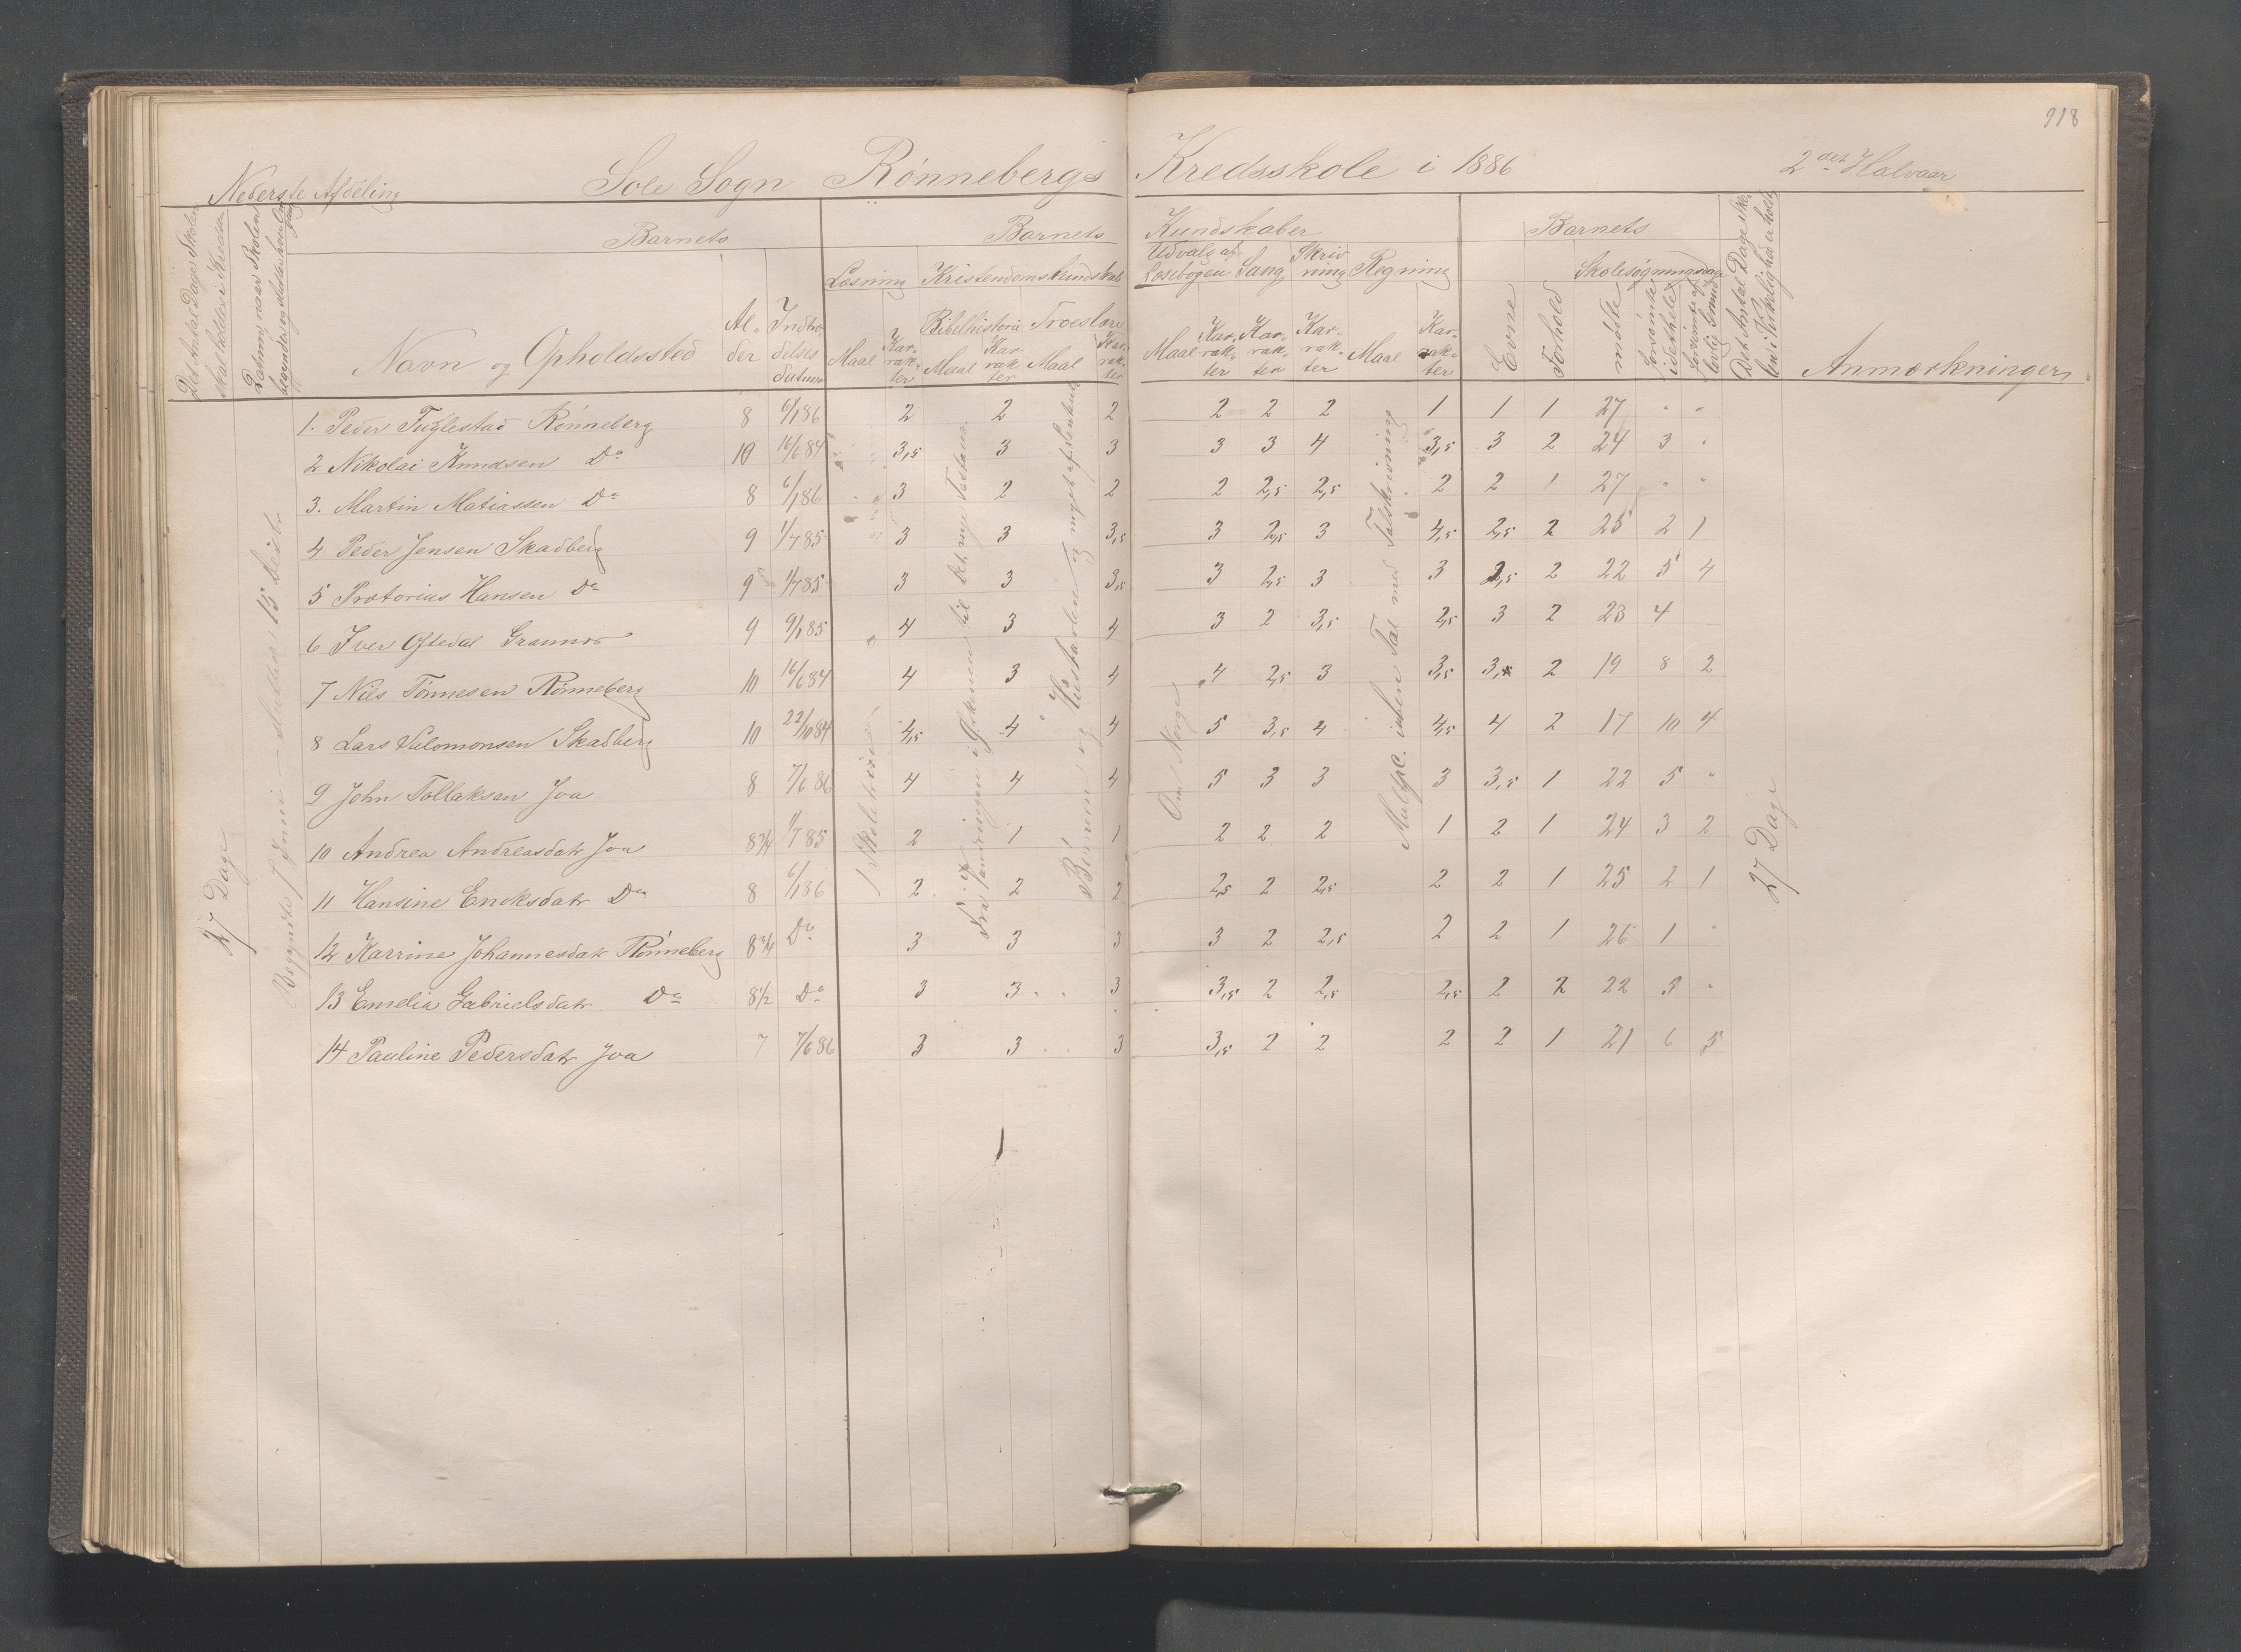 118
Nederste Afdeling Sole Sogn Rønnebergs Kredsskole i 1886 2det Halvaar
Det Antal Dage Skolen skal holdes i Kredsen
Datum, naar Skolen begynder og slutter hver Omgang
Barnets
Barnets Kundskaber
Barnets
Læsning Kristendomskundskab
Udvalg af Læsebogen Sang Skrivning Regning
Skolesøgningsdage
Det Antal Dage Skolen i Virkelighed er holdt
Navn og Opholdssted
Alder
Indtrædelsesdatum
Bibelhistorie Troeslære
Maal Karrakter Maal Karrakter Maal Karrakter
Maal Karrakter Karrakter Karrakter Maal Karrakter
Evne Forhold mødte forsømte i det hele forsømte af lovlig Grund
Anmærkninger
1. Peder Fuglestad Rønneberg 8 6/1 86 2 2 2 2 2 2 1 1 1 27 " "
2 Nikolai Knudsen Do 10 16/6 84 3,5 3 3 3 3 4 3,5 3 2 24 3 "
3. Martin Matiassen Do 8 6/1 86 3 2 2 2 2,5 2,5 2 2 1 27 " "
4 Peder Jensen Skadberg 9 1/7 85 3 3 3,5 3 2,5 3 4,5 2,5 2 25 2 1
5 Pretorius Hansen Do 9 1/7 85 3 3 3,5 3 2,5 3 3 2,5 2 22 5 4
6 Iver Oftedal 9 9/1 85 4 3 4 3 2 3,5 2,5 3 2 23 4
7 Nils Tønnesen Rønneberg 10 16/6 84 4 3 4 4 2,5 3 3,5 3,5 2 19 8 2
8 Lars Salomonsen Skadberg 10 22/10 84 4,5 4 4 5 3,5 4 4,5 4 2 17 10 4
9 John Tollaksen Joa 8 7/6 86 4 4 4 5 3 3 3 3,5 1 22 5 "
10 Andrea Andreasdatr Joa 8 3/4 1/7 85 2 1 1 2 2 2 1 2 1 24 3 2
11 Hansine Enoksdatr Do 8 6/1 86 2 2 2 2,5 2 2,5 2 2 1 25 2 1
12 Karrine Johannesdatr Rønneberg 8 3/4 Do 3 3 3 3 2 2,5 2 2 1 26 1 "
13 Emelia Gabrielsdatr Do 8 1/2 Do 3 3 3 3,5 2 2,5 2,5 2 2 22 5 "
14 Pauline Pedersdatr Joa 7 7/6 86 3 3 3 3,5 2 2 2 2 1 21 6 5
27 Dage
Begyndte 7 Juni – sluttede 15
Skoletrin
Fra Vandringen i Ørkenen til det nye Testam.
Børnene og Hustavlen og noget af
Om Norge
Multpl. uben Tal med Talskrivning
27 Dage